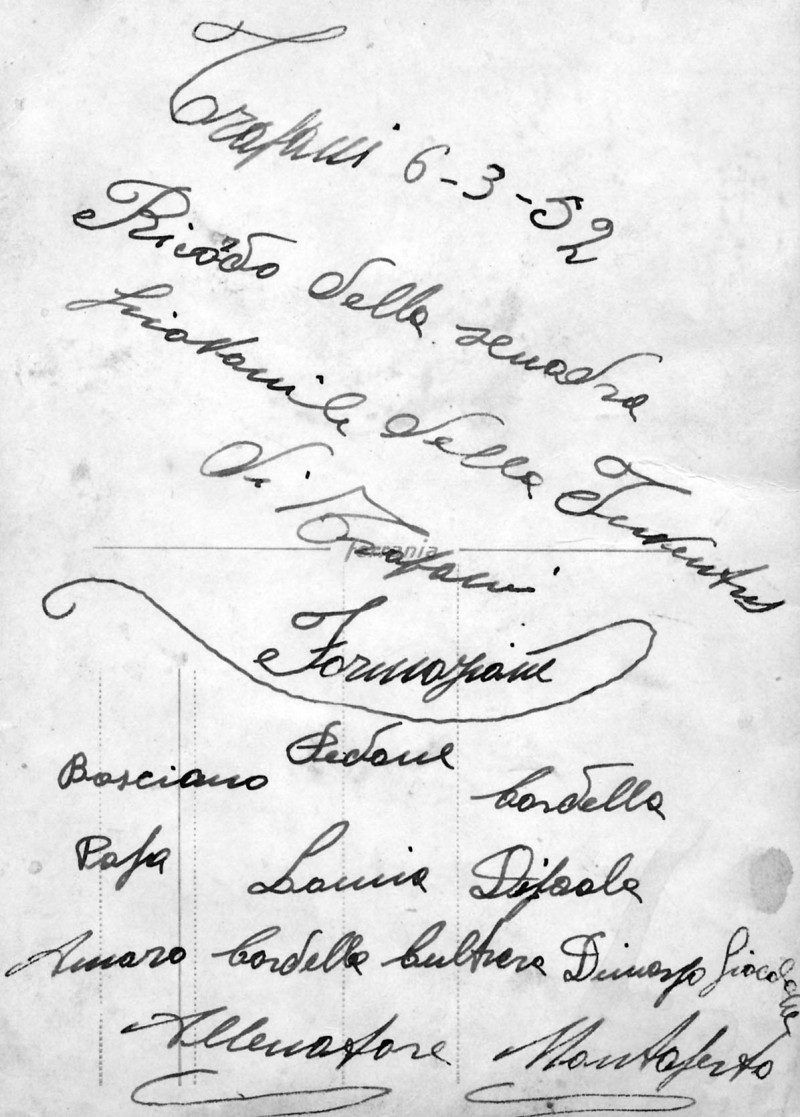 Trapani 6-3-52
Ricordo della squadra
giovanile della Juventus
di Trapani
Ferrania
Formazione
Pedone
Basciano Cordella
Papa Lamia Dipaola
Amaro Cordella Cultrera Dimarzo
Allenatore Montaperto